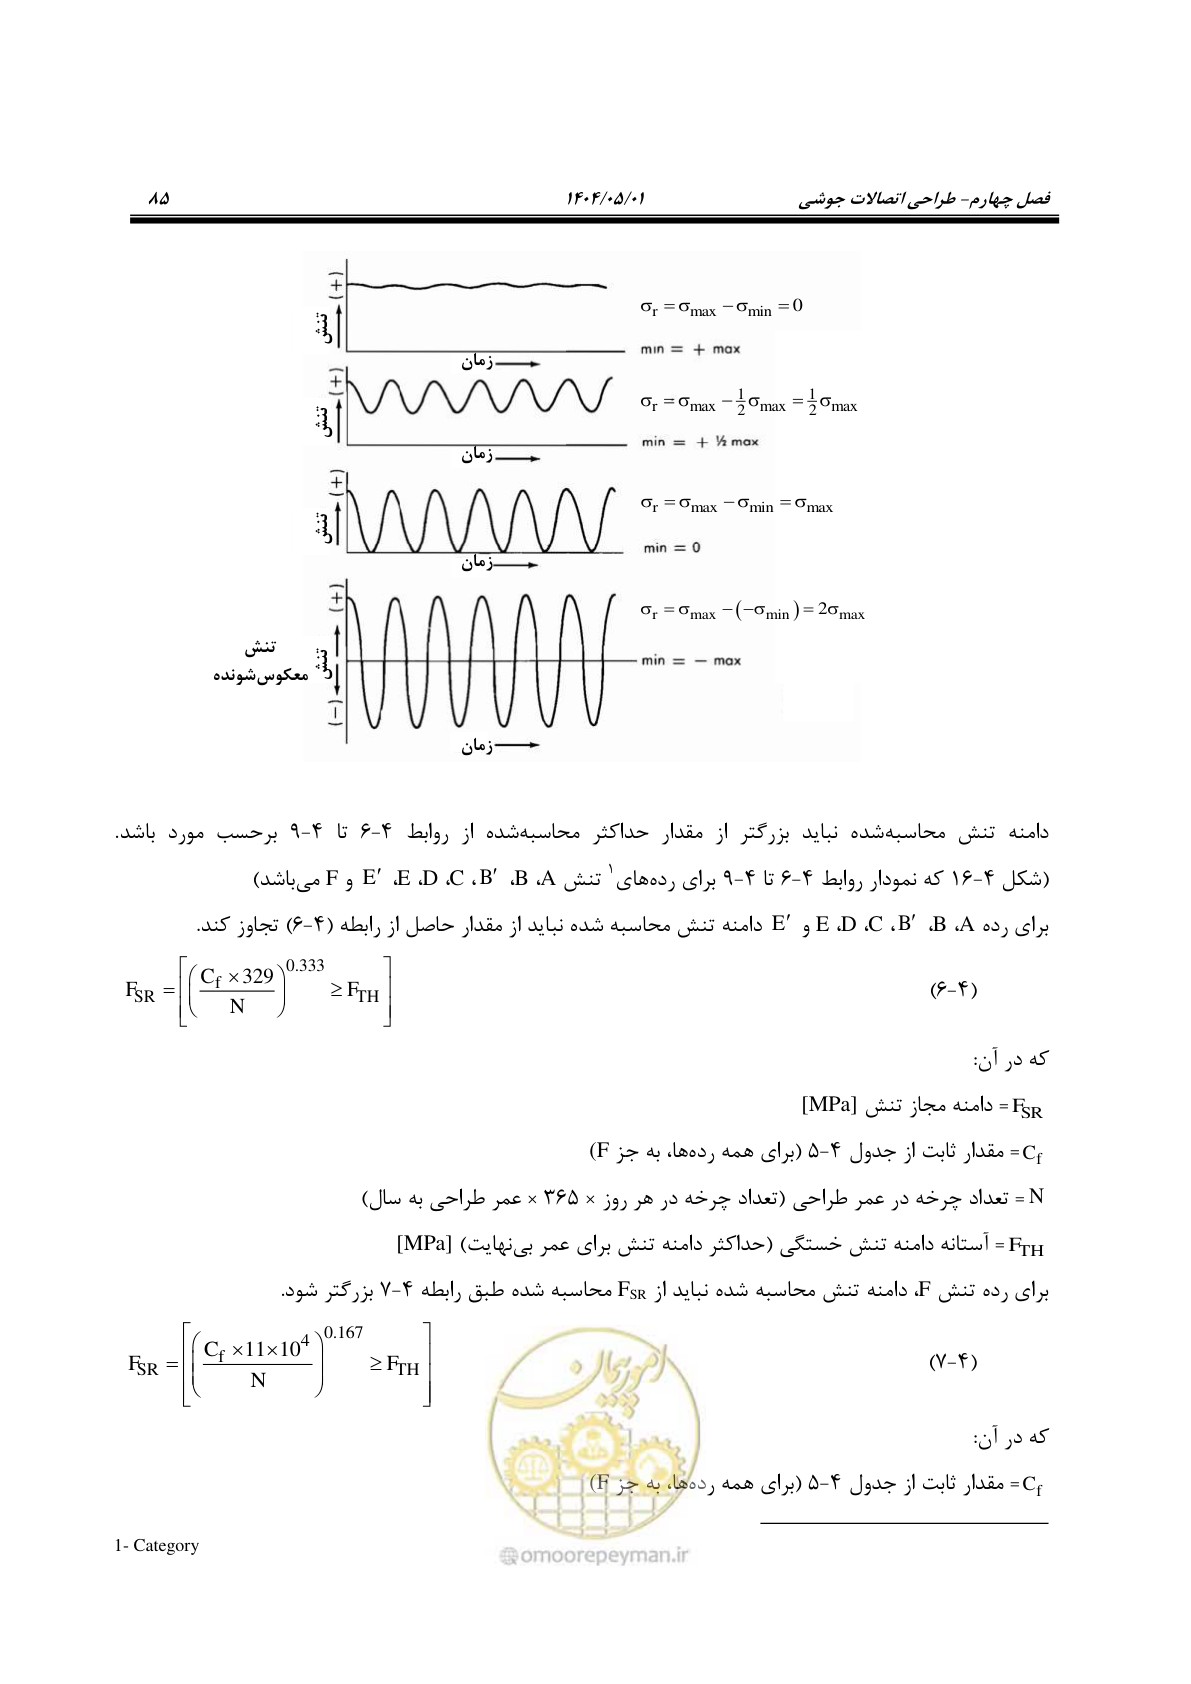 فصل چهارم- طراحی اتصالات جوشی ۱۴۰۴/۰۵/۰۱ ۸۵
(+)
تنش
زمان
σr = σmax − σmin = 0
min = + max
(+)
تنش
زمان
σr = σmax − 1/2 σmax = 1/2 σmax
min = + ½ max
(+)
تنش
زمان
σr = σmax − σmin = σmax
min = 0
(+)
تنش
(−)
تنش
معکوس‌شونده
زمان
σr = σmax − (−σmin) = 2σmax
min = − max
دامنه تنش محاسبه‌شده نباید بزرگتر از مقدار حداکثر محاسبه‌شده از روابط ۴-۶ تا ۴-۹ برحسب مورد باشد.
(شکل ۴-۱۶ که نمودار روابط ۴-۶ تا ۴-۹ برای رده‌های۱ تنش A، B، B′، C، D، E، E′ و F می‌باشد)
برای رده A، B، B′، C، D، E و E′ دامنه تنش محاسبه شده نباید از مقدار حاصل از رابطه (۴-۶) تجاوز کند.
FSR = [ (Cf × 329 / N)^0.333 ≥ FTH ] (۴-۶)
که در آن:
FSR = دامنه مجاز تنش [MPa]
Cf = مقدار ثابت از جدول ۴-۵ (برای همه رده‌ها، به جز F)
N = تعداد چرخه در عمر طراحی (تعداد چرخه در هر روز × ۳۶۵ × عمر طراحی به سال)
FTH = آستانه دامنه تنش خستگی (حداکثر دامنه تنش برای عمر بی‌نهایت) [MPa]
برای رده تنش F، دامنه تنش محاسبه شده نباید از FSR محاسبه شده طبق رابطه ۴-۷ بزرگتر شود.
FSR = [ (Cf × 11 × 10^4 / N)^0.167 ≥ FTH ] (۴-۷)
که در آن:
Cf = مقدار ثابت از جدول ۴-۵ (برای همه رده‌ها، به جز F)
1- Category
امور پیمان
@omoorepeyman.ir